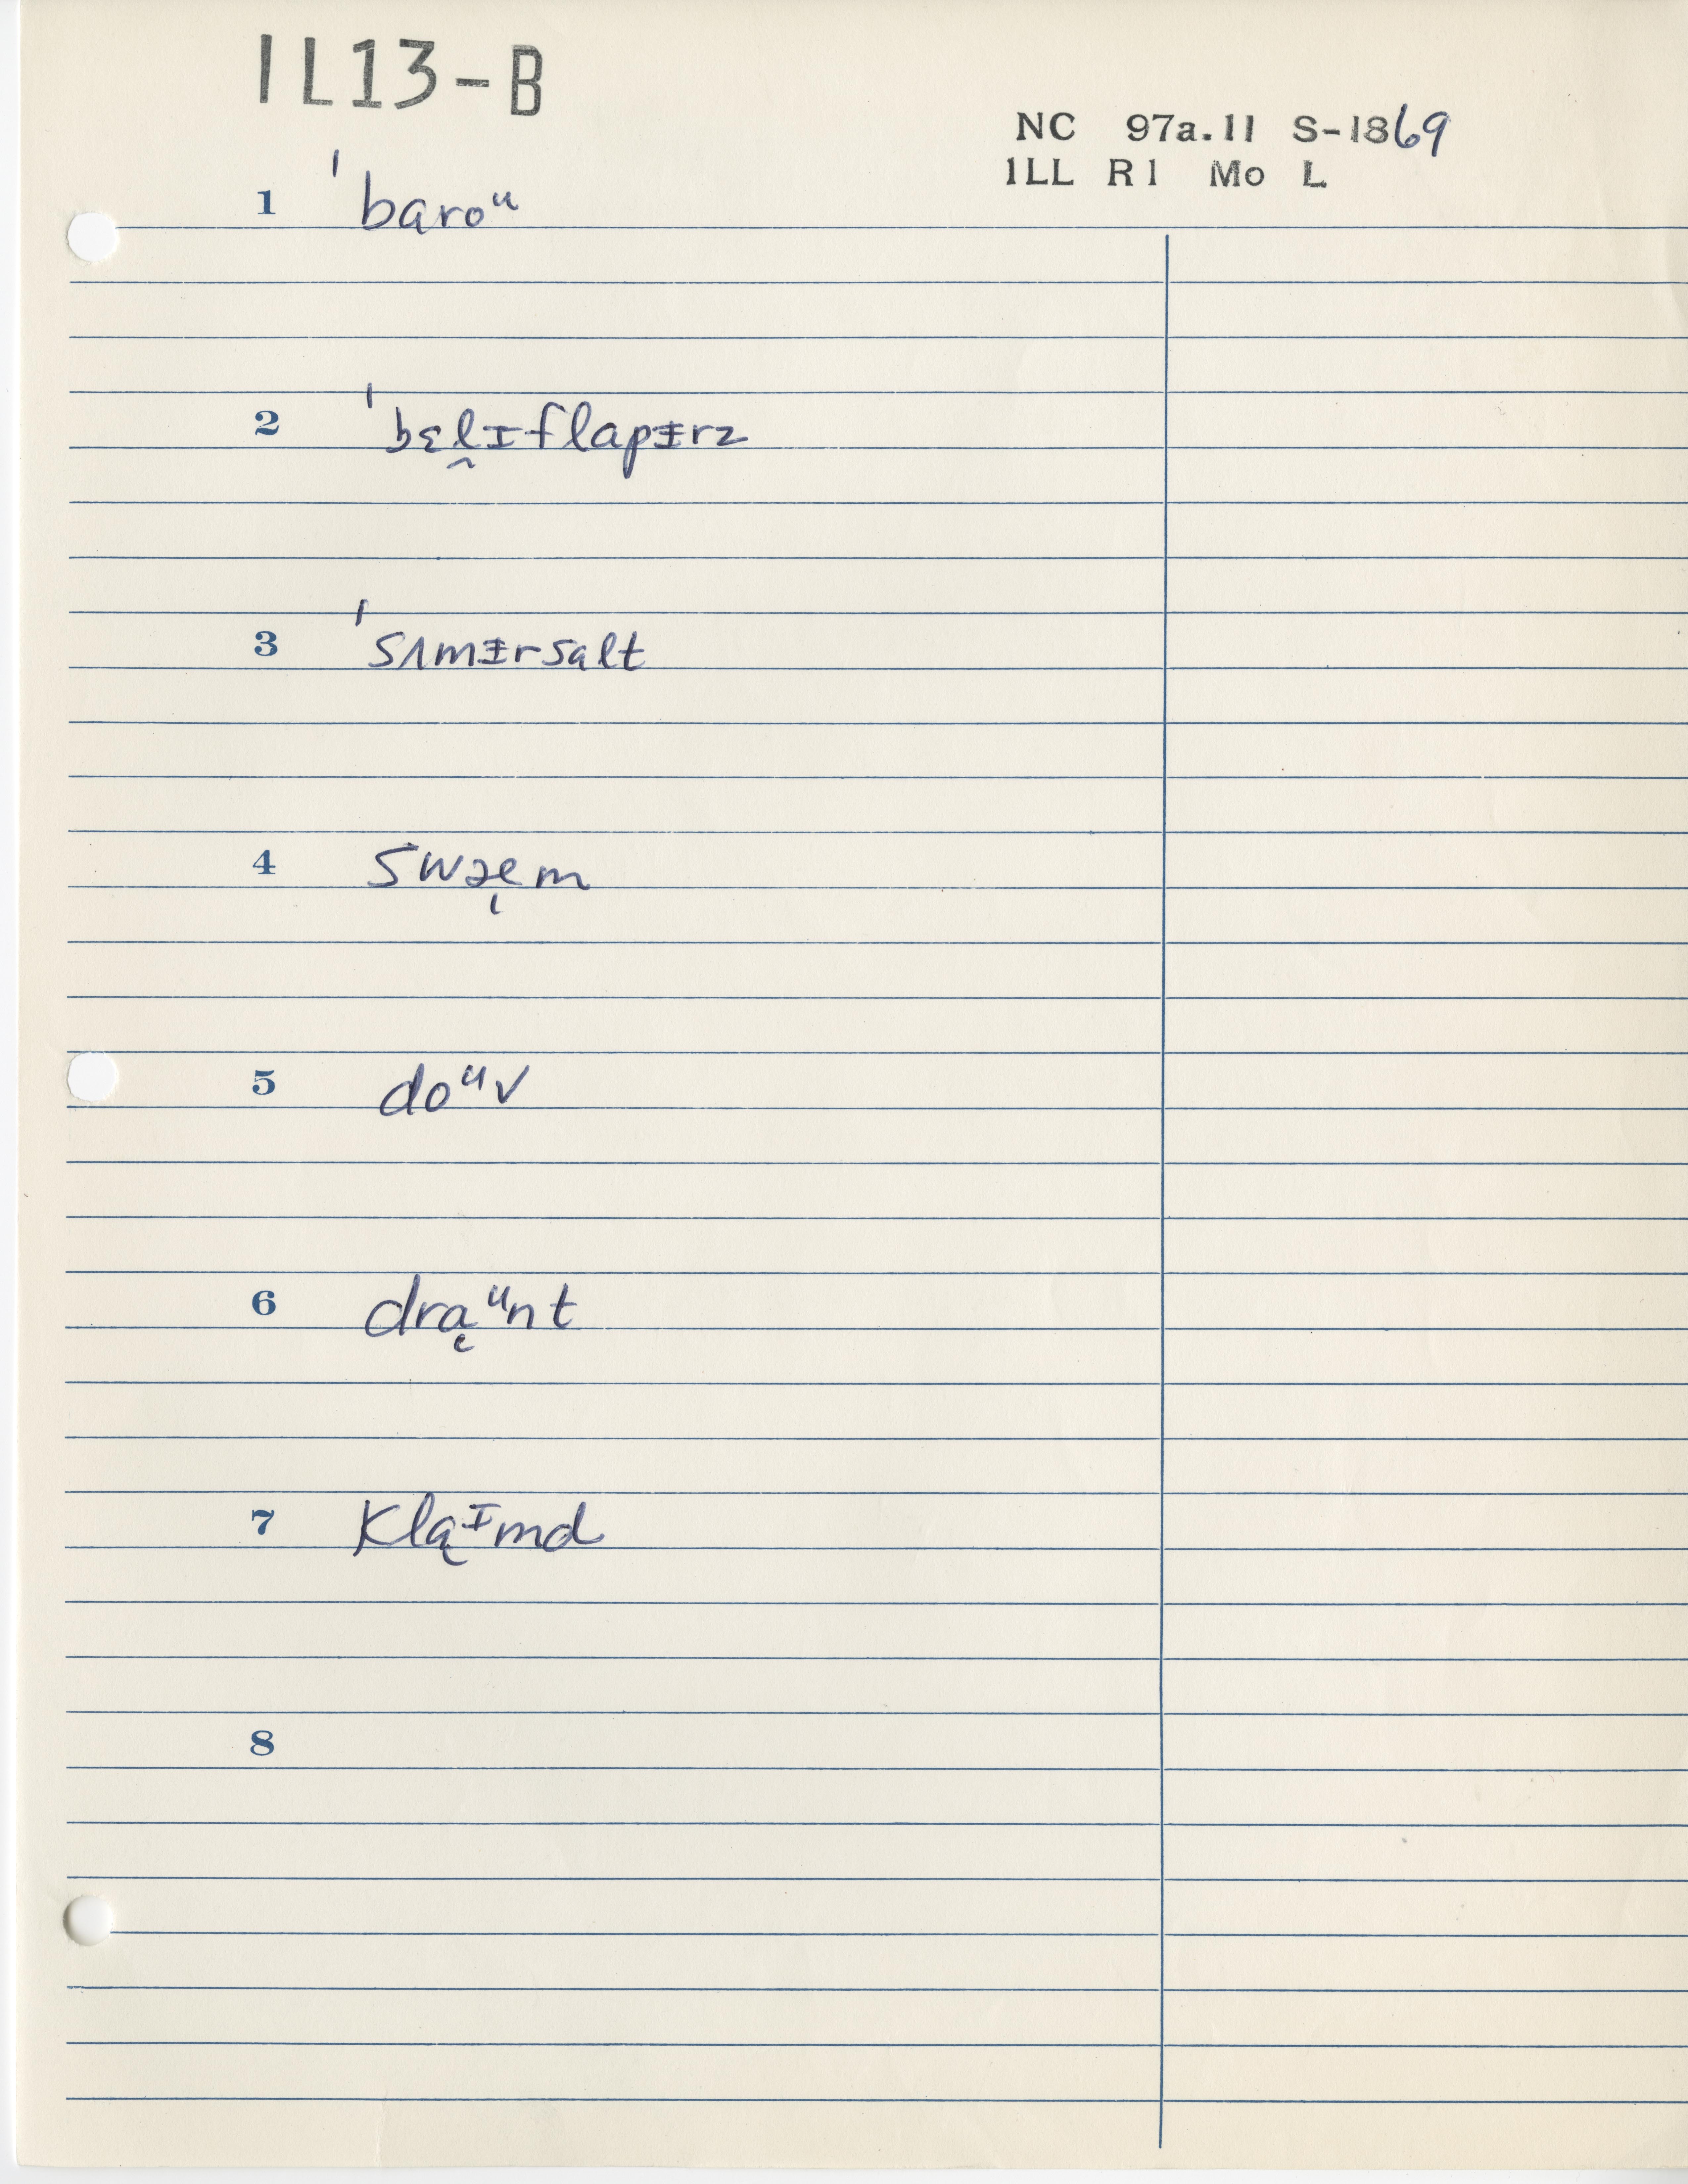 IL13-B
NC 97a.11 S-1869
ILL R1 Mo L
1 ˈbaroᵘ
2 ˈbɛl̯ɪflapɪ̵rz
3 ˈsʌmɪ̵rsalt
4 swæ̩m
5 doᵘv
6 dra̜ᵘnt
7 kla̜ᶦmd
8